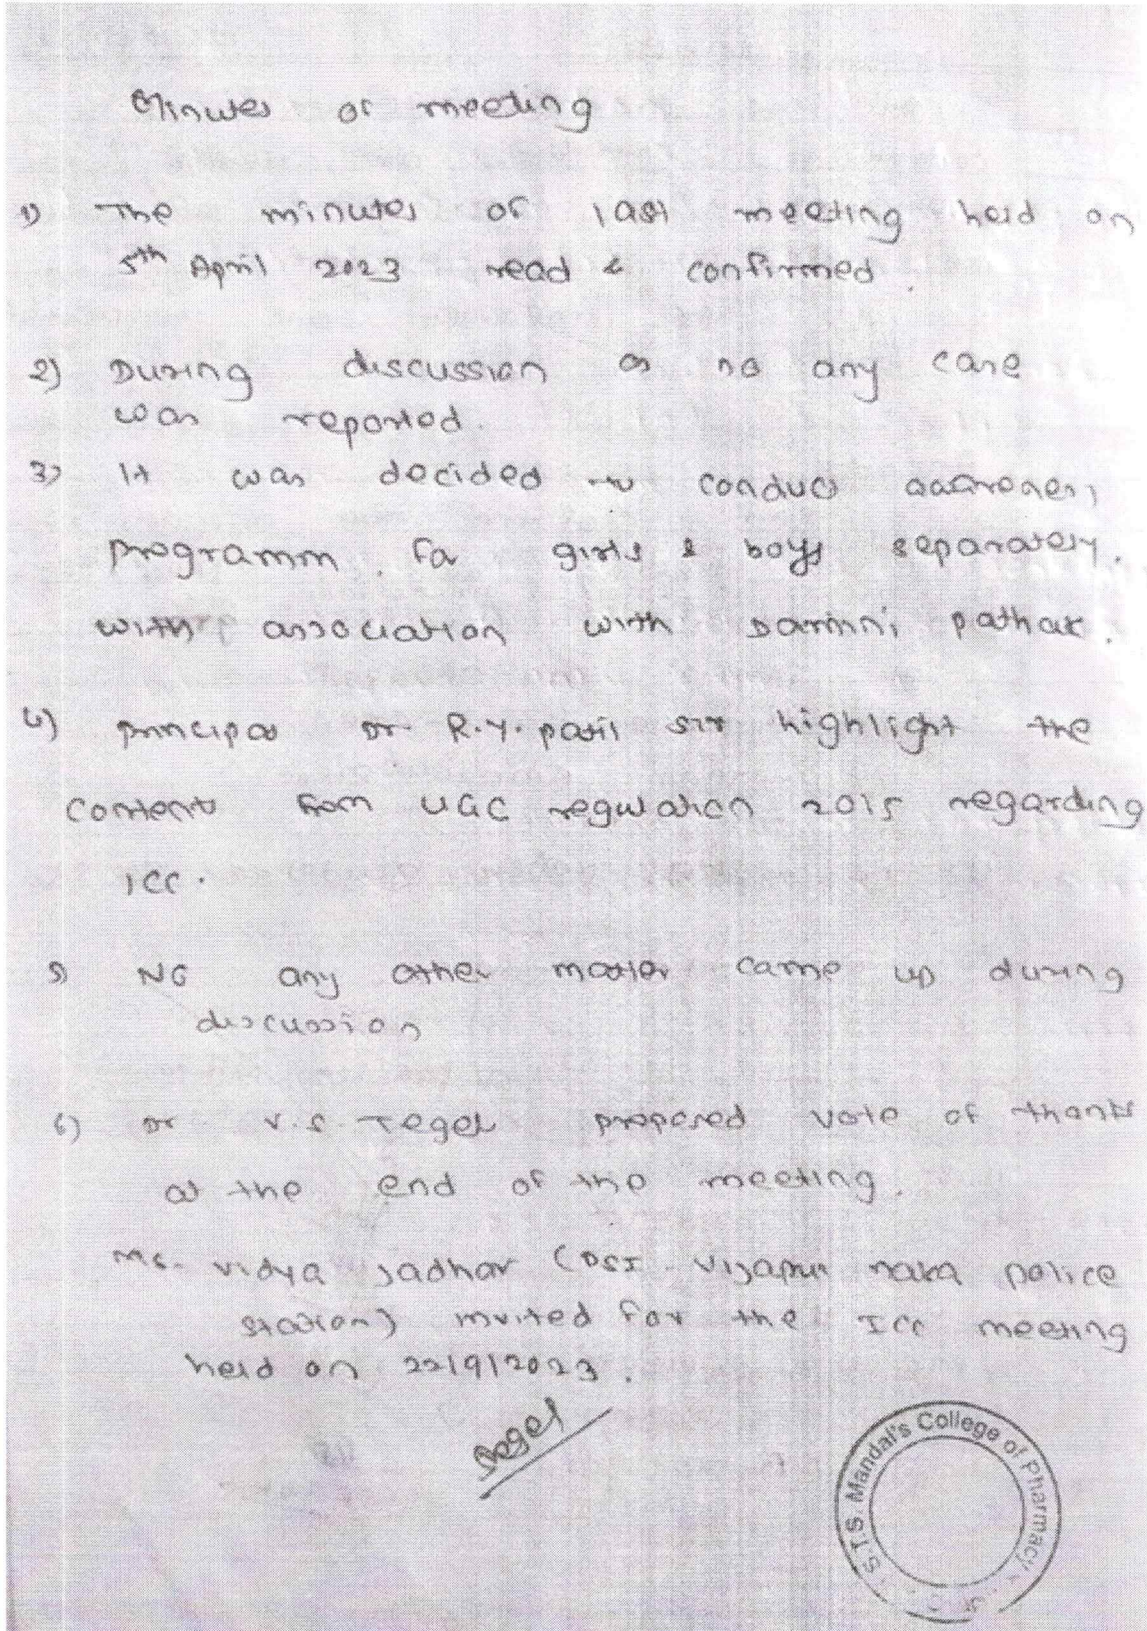 Minutes of meeting
1) The minutes of last meeting held on
5th April 2023 read & confirmed.
2) During discussion no any case
was reported.
3) It was decided to conduct awareness
programm. for girls & boys separately.
with association with Damini pathak.
4) principal Dr. R.Y. patil sir highlight the
content from UGC regulation 2015 regarding
ICC.
5) No any other matter came up during
discussion
6) Dr V.S. Tegel proposed vote of thanks
at the end of the meeting.
Ms. Vidya Jadhav (PSI. Vijapur naka police
station) invited for the ICC meeting
held on 22/9/2023.
S.T.S. Mandal's College of Pharmacy